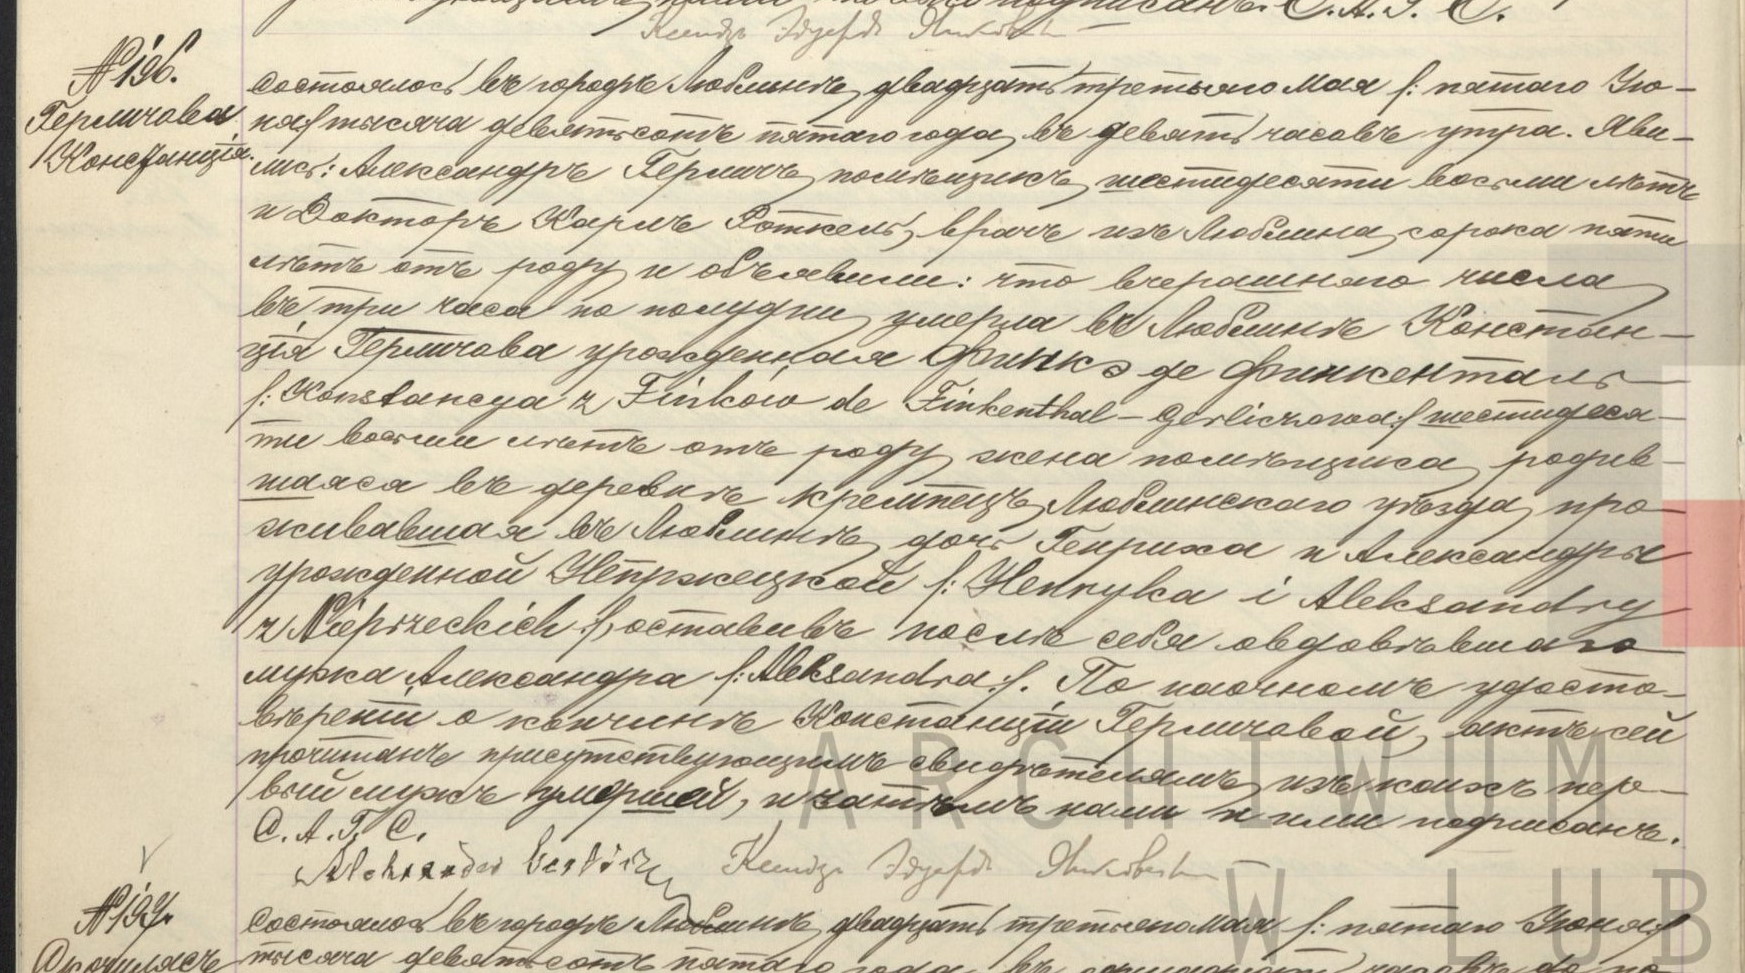 подписанъ. С. А. Г. С.
Ксендзъ
№ 196.
Герличова
Констанція.
Состоялось въ городѣ Люблинѣ, двадцать третьяго Мая /: пятаго Ію-
ня :/ тысяча девятьсотъ пятаго года, въ девять часовъ утра. Яви-
лись: Александръ Герличъ, помѣщикъ, шестидесяти восьми лѣтъ
и Докторъ Карлъ Роткель, врачъ изъ Люблина, сорока пяти
лѣтъ отъ роду, и объявили: что вчерашняго числа,
въ три часа по полудни, умерла въ Люблинѣ Констан-
ція Герличова урожденная Финкъ де Финкенталь
/: Konstancya z Finków de Finkenthal – Gerliczowa :/ шестидеся-
ти восьми лѣтъ отъ роду, жена помѣщика, родив-
шаяся въ деревнѣ Кремпецъ, Люблинскаго уѣзда, про-
живавшая въ Люблинѣ, дочь Генриха и Александры
урожденной Непржецкой /: Henryka i Aleksandry
z Nieprzeckich :/, оставивъ послѣ себя овдовѣвшаго
мужа Александра /: Aleksandra :/. По наочномъ удосто-
вѣреніи о кончинѣ Констанціи Герличовой, актъ сей
прочитанъ присутствующимъ свидѣтелямъ, изъ коихъ пер-
вый мужъ умершей, и затѣмъ нами и ими подписанъ.
С. А. Г. С.
Aleksander Gerlicz Ксендзъ
№ 197.
Состоялось въ городѣ Люблинѣ, двадцать третьяго Мая /: пятаго Іюня :/
тысяча девятьсотъ пятаго года, въ
ARCHIWUM
W LUB